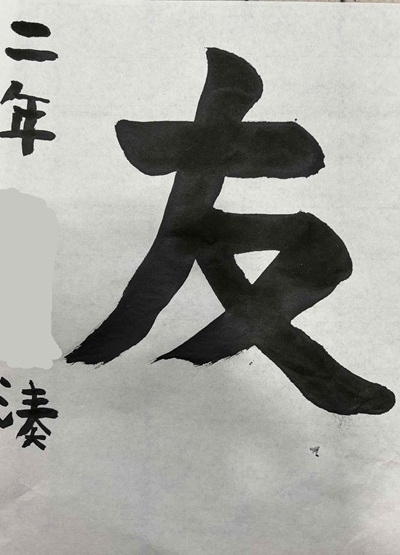 友
二年
湊